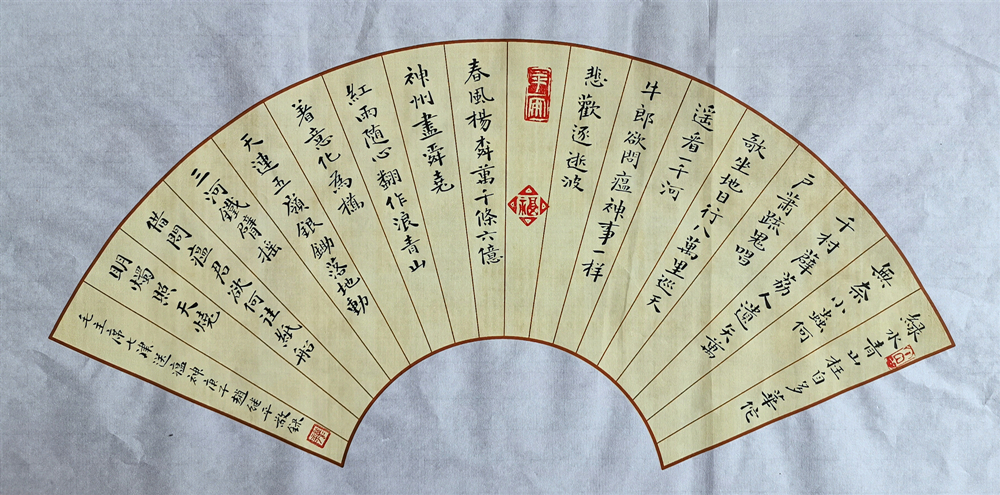 綠水青山枉自多華佗
無奈小蟲何
千村薜荔人遺矢萬
戶蕭疏鬼唱
歌坐地日行八萬里巡天
遥看一千河
牛郎欲問瘟神事一样
悲歡逐逝波
平安
福
春風楊柳萬千條六億
神州盡舜堯
紅雨隨心翻作浪青山
着意化為橋
天連五嶺銀鋤落地動
三河鐵臂搖
借問瘟君欲何往紙船
明燭照天燒
毛主席七律送瘟神庚子趙継平敬録